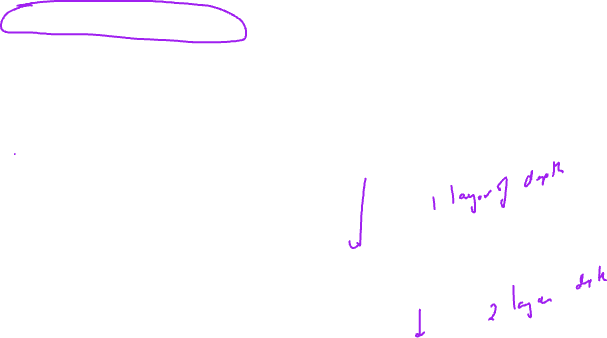 1 layer of depth
2 layer depth